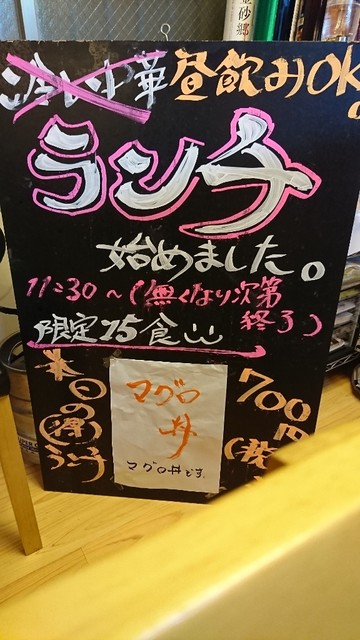 金砂郷
冷い中華 昼飲みOK
ランチ
始めました。
11:30~(無くなり次第
終了)
限定15食
本日の(得)ランチ
マグロ
丼
マグロ丼です。
700円
(税